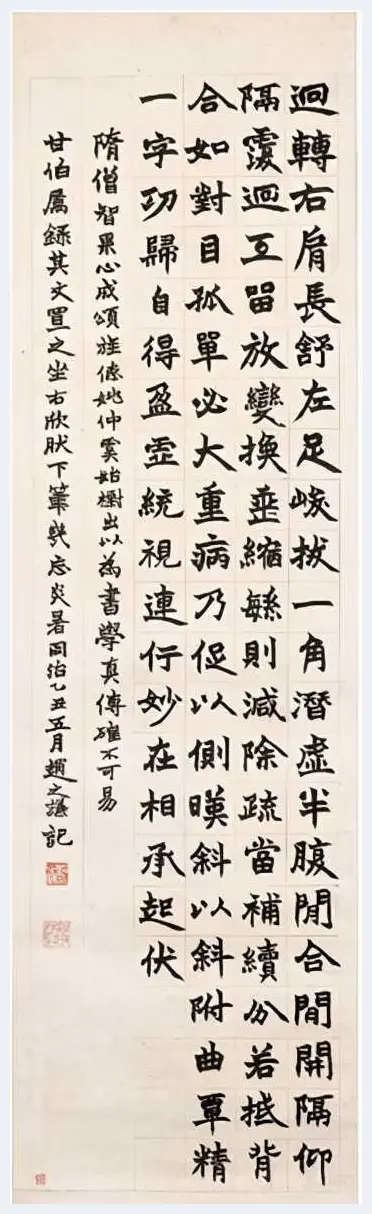 迴轉右肩長舒左足峻拔一角潛虛半腹間合間開隔仰
隔覆迴互畱放變換垂縮緐則減除疏當補續分若抵背
合如對目孤單必大重病乃促以側暎斜以斜附曲覃精
一字功歸自得盈虛統視連行妙在相承起伏
隋僧智果心成頌旌德姚仲虞始𣙜出以為書學真傳確不可易
甘伯屬錄其文置之坐右欣肰下筆幾忘炎暑同治乙丑五月趙之謙記